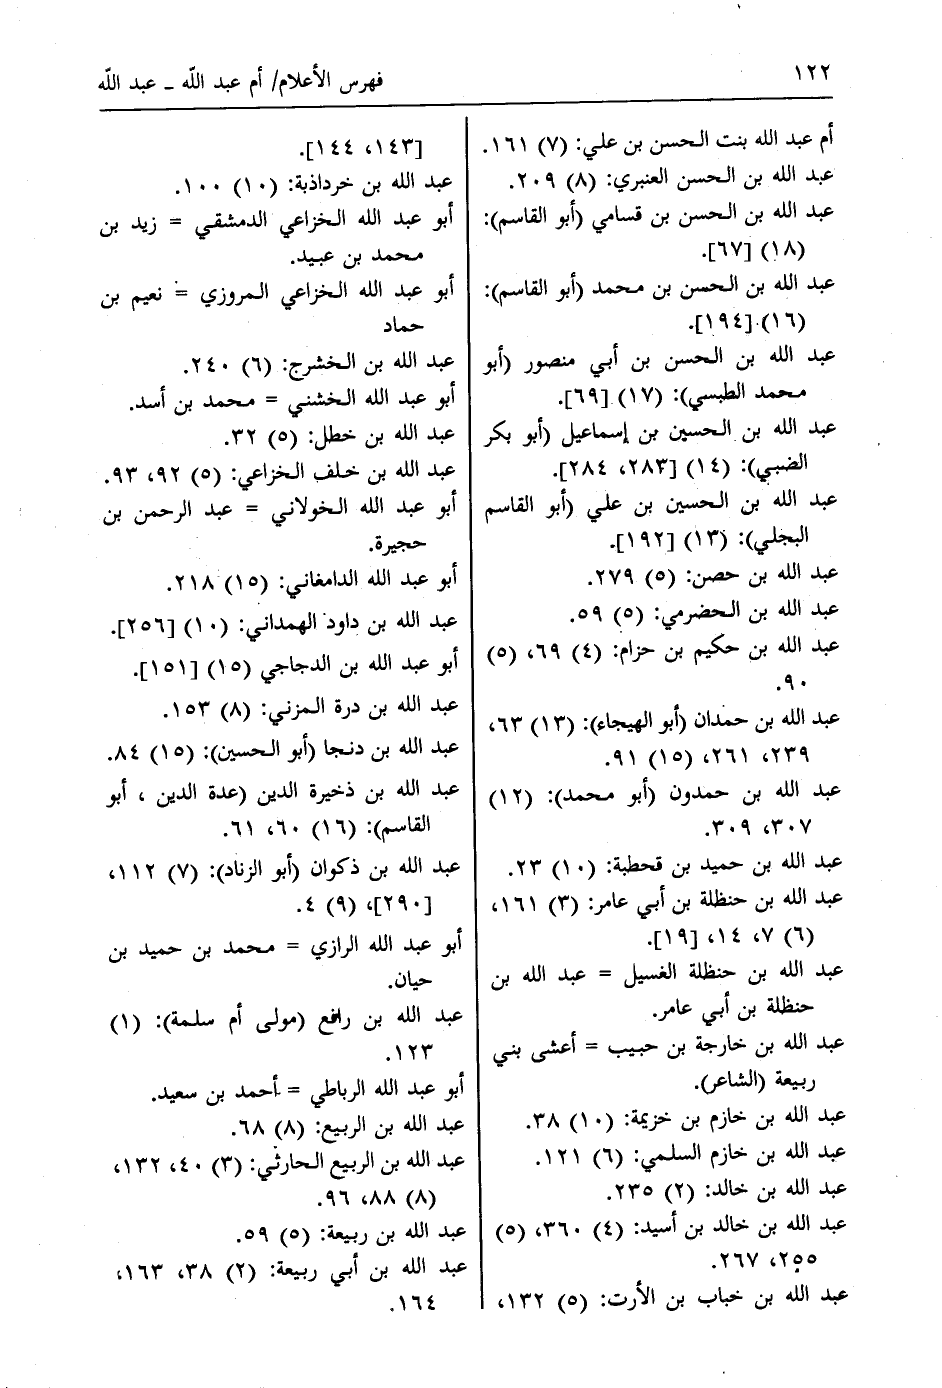 ١٢٢
فهرس الأعلام/ أم عبد الله ـ عبد الله
أم عبد الله بنت الحسن بن علي: (٧) ١٦١.
عبد الله بن الحسن العنبري: (٨) ٢٠٩.
عبد الله بن الحسن بن قسامي (أبو القاسم):
(١٨) [٦٧].
عبد الله بن الحسن بن محمد (أبو القاسم):
(١٦) [١٩٤].
عبد الله بن الحسن بن أبي منصور (أبو
محمد الطبسي): (١٧) [٦٩].
عبد الله بن الحسين بن إسماعيل (أبو بكر
الضبي): (١٤) [٢٨٣، ٢٨٤].
عبد الله بن الحسين بن علي (أبو القاسم
البجلي): (١٣) [١٩٢].
عبد الله بن حصن: (٥) ٢٧٩.
عبد الله بن الحضرمي: (٥) ٥٩.
عبد الله بن حكيم بن حزام: (٤) ٦٩، (٥)
٩٠.
عبد الله بن حمدان (أبو الهيجاء): (١٣) ٦٣،
٢٣٩، ٢٦١، (١٥) ٩١.
عبد الله بن حمدون (أبو محمد): (١٢)
٣٠٧، ٣٠٩.
عبد الله بن حميد بن قحطبة: (١٠) ٢٣.
عبد الله بن حنظلة بن أبي عامر: (٣) ١٦١،
(٦) ٧، ١٤، [١٩].
عبد الله بن حنظلة الغسيل = عبد الله بن
حنظلة بن أبي عامر.
عبد الله بن خارجة بن حبيب = أعشى بني
ربيعة (الشاعر).
عبد الله بن خازم بن خزيمة: (١٠) ٣٨.
عبد الله بن خازم السلمي: (٦) ١٢١.
عبد الله بن خالد: (٢) ٢٣٥.
عبد الله بن خالد بن أسيد: (٤) ٣٦٠، (٥)
٢٥٥، ٢٦٧.
عبد الله بن خباب بن الأرت: (٥) ١٣٢،
[١٤٣، ١٤٤].
عبد الله بن خرداذبة: (١٠) ١٠٠.
أبو عبد الله الخزاعي الدمشقي = زيد بن
محمد بن عبيد.
أبو عبد الله الخزاعي المروزي = نعيم بن
حماد
عبد الله بن الخشرج: (٦) ٢٤٠.
أبو عبد الله الخشني = محمد بن أسد.
عبد الله بن خطل: (٥) ٣٢.
عبد الله بن خلف الخزاعي: (٥) ٩٢، ٩٣.
أبو عبد الله الخولاني = عبد الرحمن بن
حجيرة.
أبو عبد الله الدامغاني: (١٥) ٢١٨.
عبد الله بن داود الهمداني: (١٠) [٢٥٦].
أبو عبد الله بن الدجاجي (١٥) [١٥١].
عبد الله بن درة المزني: (٨) ١٥٣.
عبد الله بن دنجا (أبو الحسين): (١٥) ٨٤.
عبد الله بن ذخيرة الدين (عدة الدين ، أبو
القاسم): (١٦) ٦٠، ٦١.
عبد الله بن ذكوان (أبو الزناد): (٧) ١١٢،
[٢٩٠]، (٩) ٤.
أبو عبد الله الرازي = محمد بن حميد بن
حيان.
عبد الله بن رافع (مولى أم سلمة): (١)
١٢٣.
أبو عبد الله الرباطي = أحمد بن سعيد.
عبد الله بن الربيع: (٨) ٦٨.
عبد الله بن الربيع الحارثي: (٣) ٤٠، ١٣٢،
(٨) ٨٨، ٩٦.
عبد الله بن ربيعة: (٥) ٥٩.
عبد الله بن أبي ربيعة: (٢) ٣٨، ١٦٣،
١٦٤.